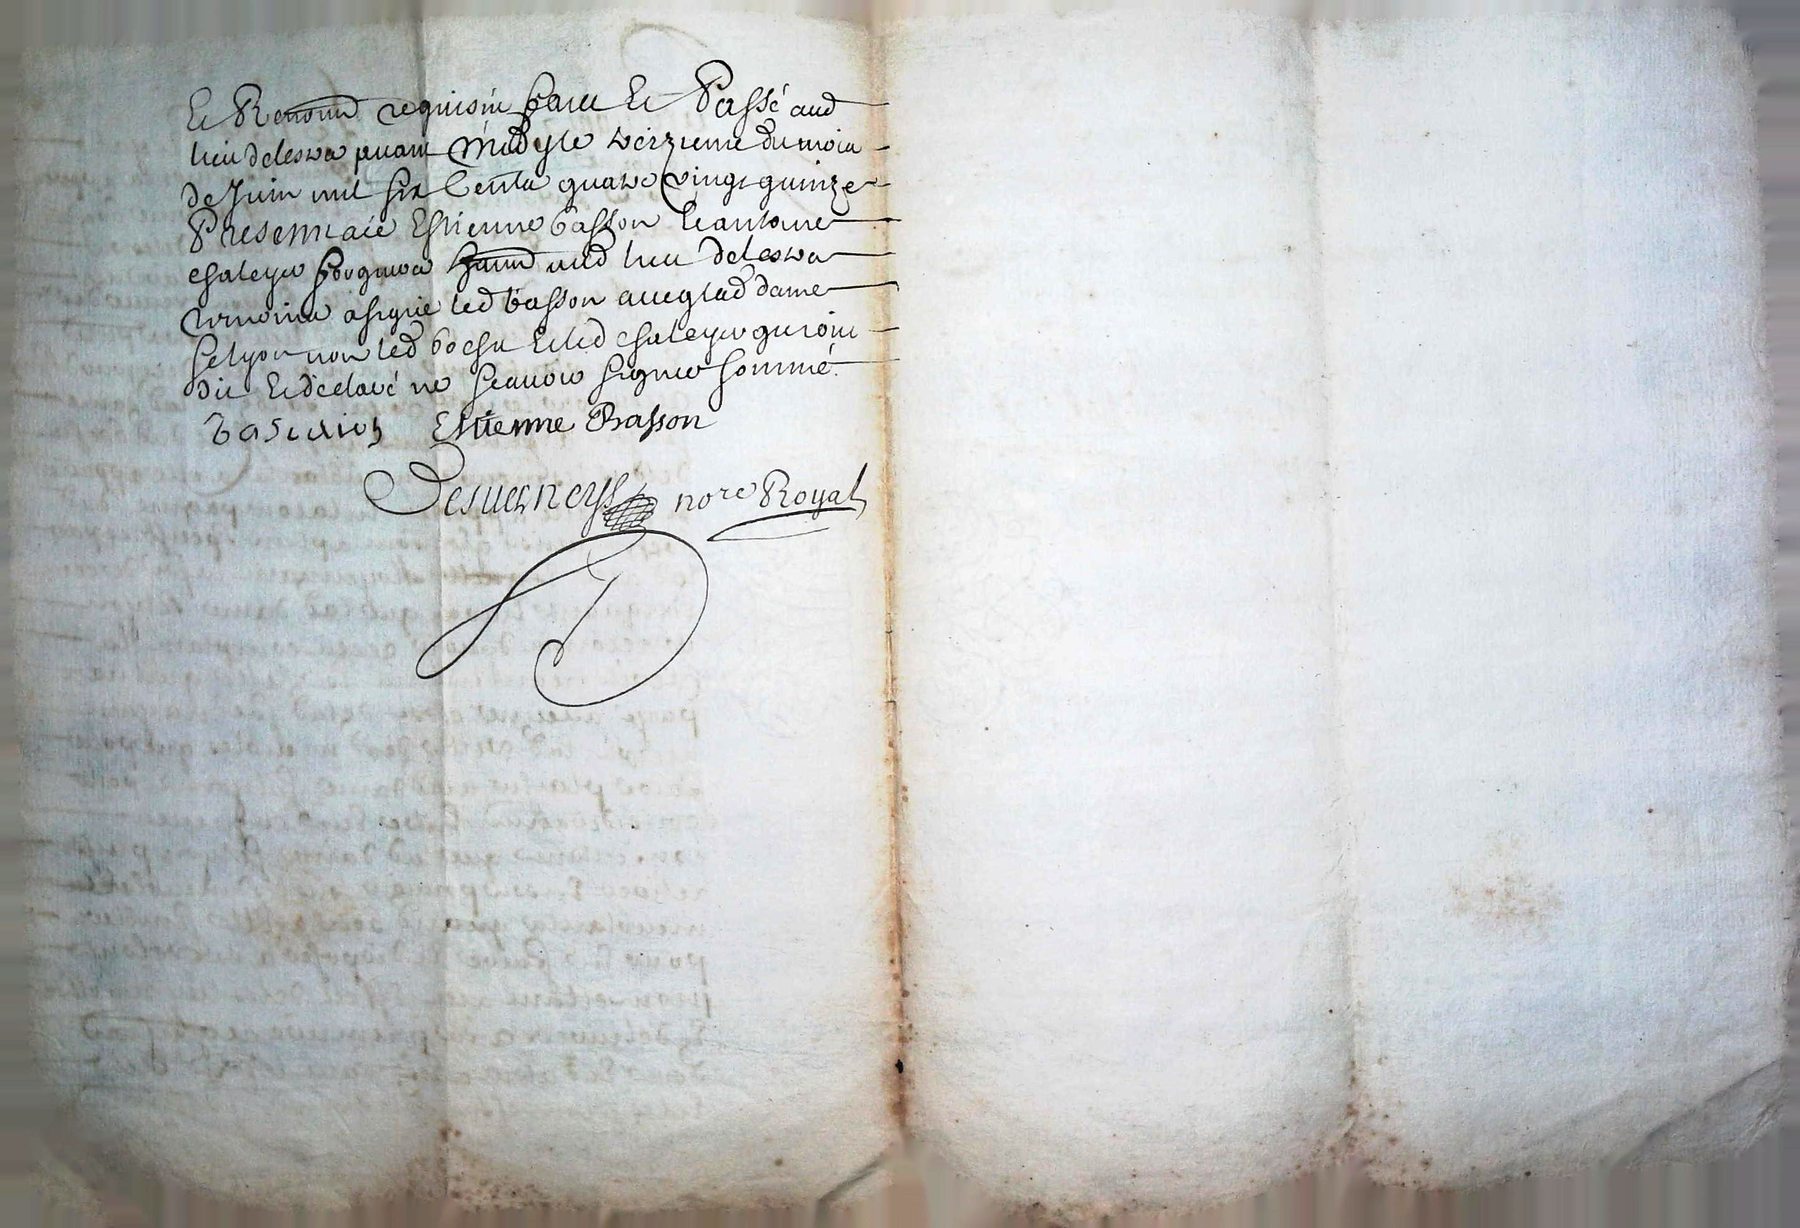 Et Renond requision faict Et Passé aud
lieu delestra avant Midy le treizieme du mois
de Juin mil six Centz quatre vingt quinze
Presentz aie Estienne basson Et antoine
chaleyer habitant aud lieu delestra
tesmoins a signé led basson avec lad dame
non led bochu Et led chaleyer qui ont
dit Et declaré ne scavoir signer sommé
Estienne Basson
Desverneys nore Royal